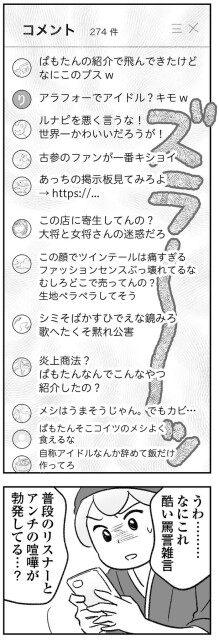 コメント 274 件
ぱもたんの紹介で飛んできたけど
なにこのブス w
り
アラフォーでアイドル？キモ w
ルナピを悪く言うな！
世界一かわいいだろうが！
古参のファンが一番キショイ
あっちの掲示板見てみろよ
→ https://...
この店に寄生してんの？
大将と女将さんの迷惑だろ
この顔でツインテールは痛すぎる
ファッションセンスぶっ壊れてるな
むしろどこで売ってんの？
生地ペラペラしてそう
シミそばかすひでえな鏡みろ
歌へたくそ黙れ公害
炎上商法？
ぱもたんなんでこんなやつ
紹介したの？
メシはうまそうじゃん。でもカビ…
ぱもたんそこコイツのメシよく
食えるな
自称アイドルなんか辞めて飯だけ
作ってろ
ズラーーッ
うわ……
なにこれ
酷い罵詈雑言
普段のリスナーと
アンチの喧嘩が
勃発してる…？